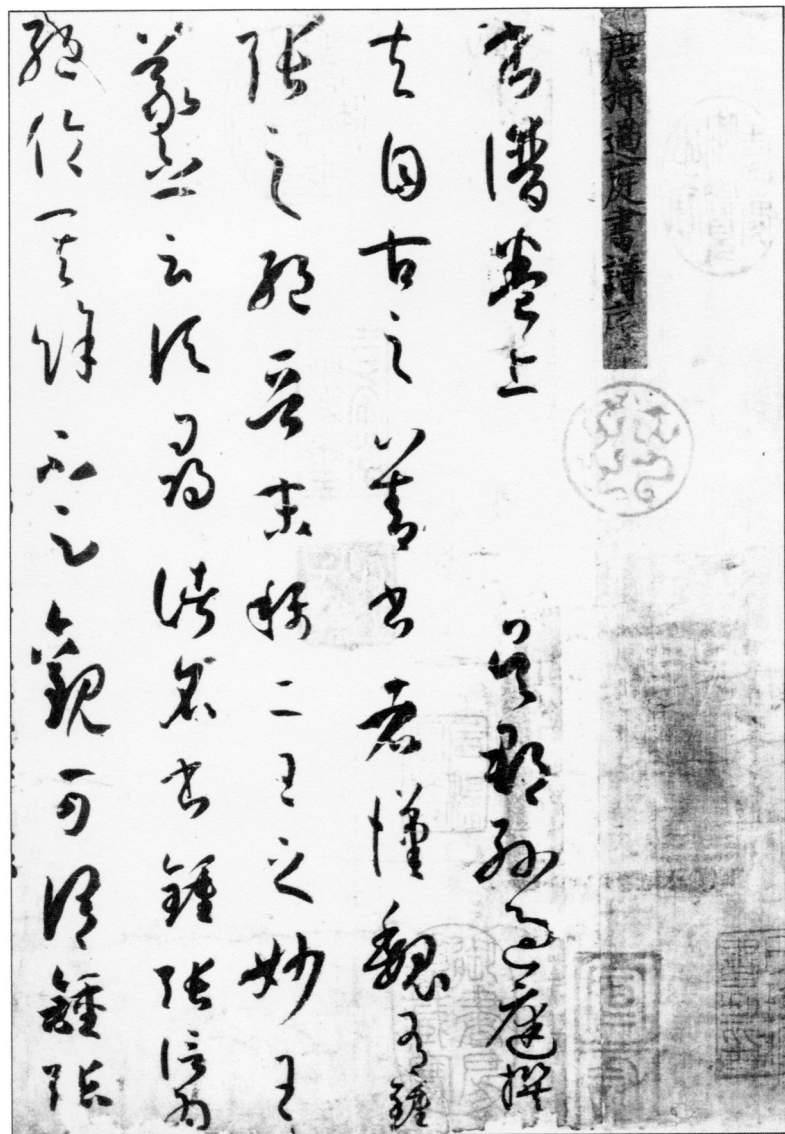 唐孫過庭書譜序
書譜卷上 吳郡孫過庭撰
夫自古之善書者漢魏有鍾
張之絕晉末稱二王之妙王
羲之云頃尋諸名書鍾張信為
絕倫其餘不足觀可謂鍾張